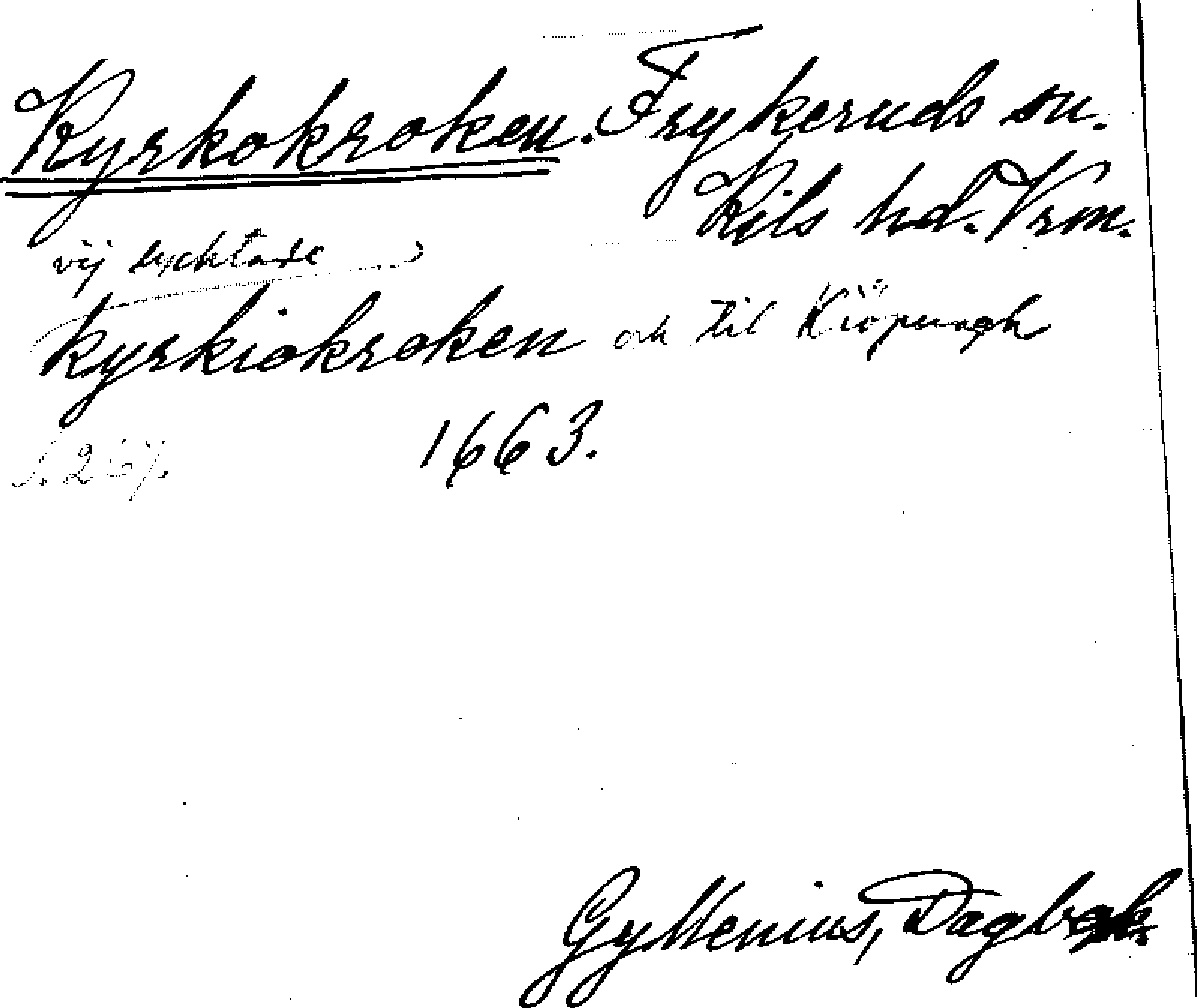 Kyrkokroken. Frykeruds sn.
Kils hd. Vrm.
vij
kyrkiokroken och til Kiöpungh
1663.
s. 267.
Gyllenius, Dagbok